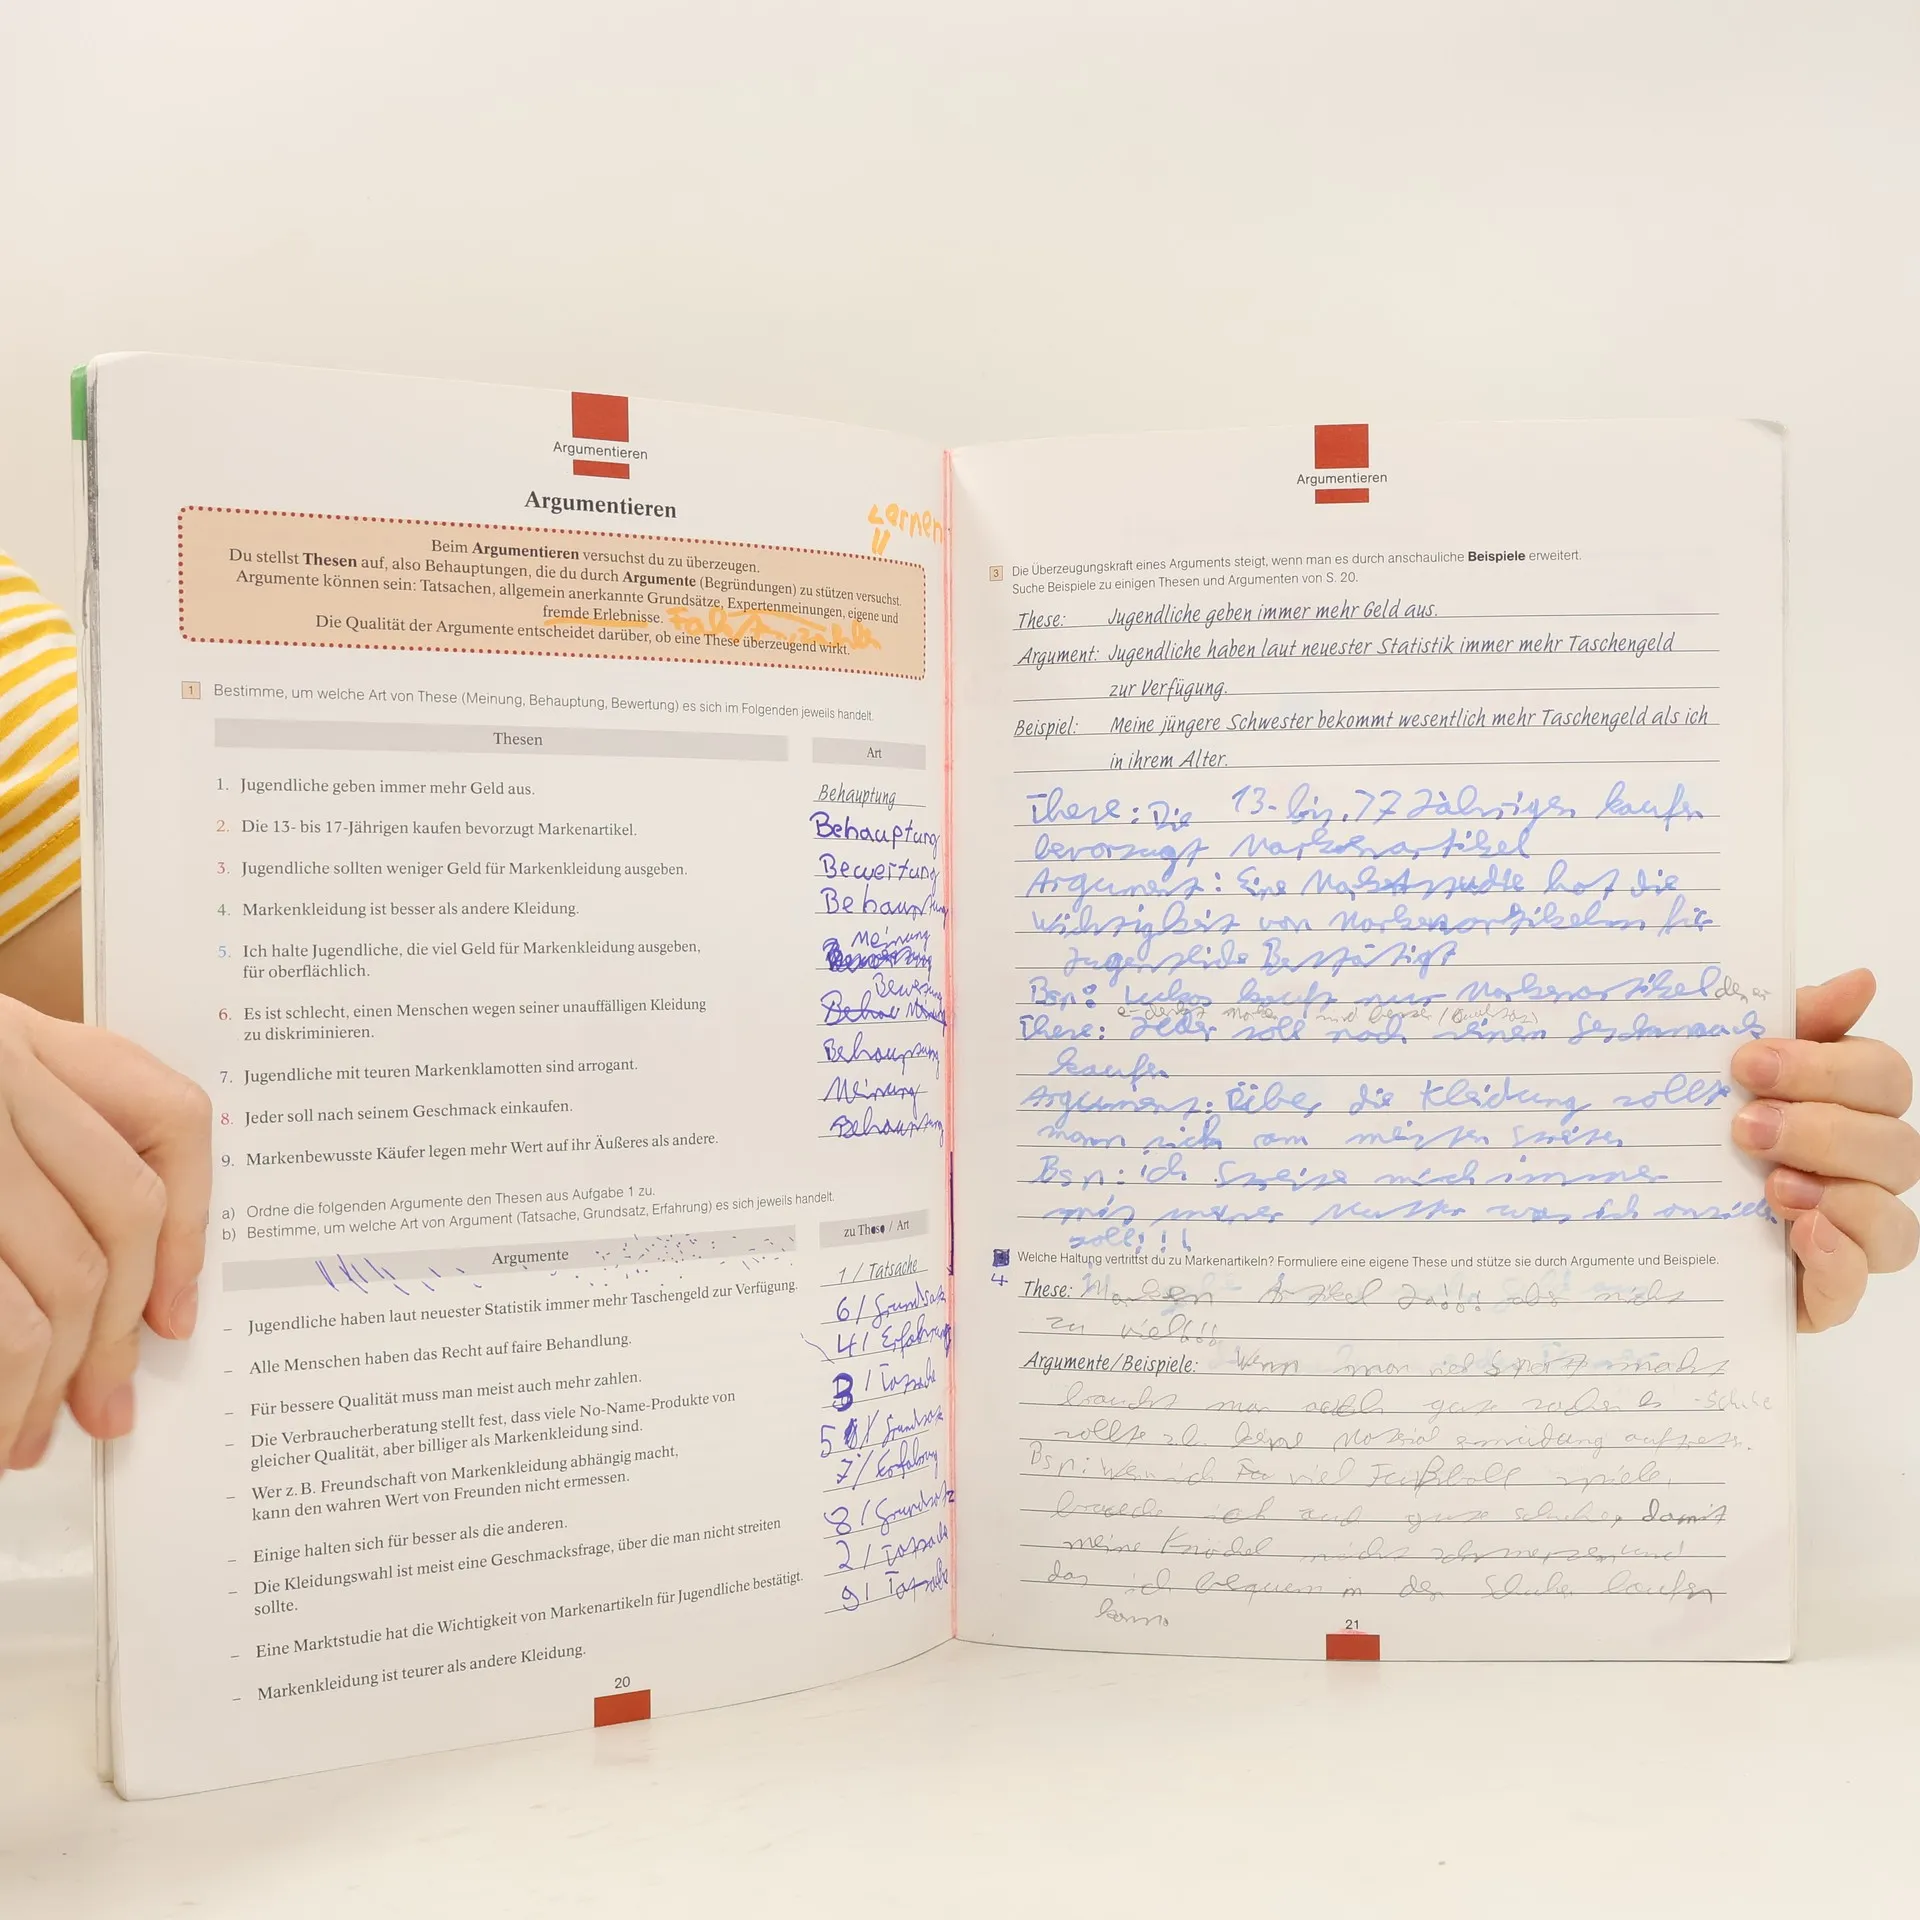 Argumentieren
Argumentieren
Lernen
!!
Beim Argumentieren versuchst du zu überzeugen.
Du stellst Thesen auf, also Behauptungen, die du durch Argumente (Begründungen) zu stützen versuchst.
Argumente können sein: Tatsachen, allgemein anerkannte Grundsätze, Expertenmeinungen, eigene und
fremde Erlebnisse.
Die Qualität der Argumente entscheidet darüber, ob eine These überzeugend wirkt.
1 Bestimme, um welche Art von These (Meinung, Behauptung, Bewertung) es sich im Folgenden jeweils handelt.
Thesen Art
1. Jugendliche geben immer mehr Geld aus. Behauptung
2. Die 13- bis 17-Jährigen kaufen bevorzugt Markenartikel. Behauptung
3. Jugendliche sollten weniger Geld für Markenkleidung ausgeben. Bewertung
4. Markenkleidung ist besser als andere Kleidung. Behauptung
5. Ich halte Jugendliche, die viel Geld für Markenkleidung ausgeben, Meinung
für oberflächlich.
6. Es ist schlecht, einen Menschen wegen seiner unauffälligen Kleidung
zu diskriminieren.
7. Jugendliche mit teuren Markenklamotten sind arrogant. Behauptung
8. Jeder soll nach seinem Geschmack einkaufen. Meinung
9. Markenbewusste Käufer legen mehr Wert auf ihr Äußeres als andere. Behauptung
a) Ordne die folgenden Argumente den Thesen aus Aufgabe 1 zu.
b) Bestimme, um welche Art von Argument (Tatsache, Grundsatz, Erfahrung) es sich jeweils handelt.
Argumente zu These / Art
– Jugendliche haben laut neuester Statistik immer mehr Taschengeld zur Verfügung. 1 / Tatsache
– Alle Menschen haben das Recht auf faire Behandlung. 6 / Grundsatz
– Für bessere Qualität muss man meist auch mehr zahlen. 4 / Erfahrung
– Die Verbraucherberatung stellt fest, dass viele No-Name-Produkte von 3 / Tatsache
gleicher Qualität, aber billiger als Markenkleidung sind.
– Wer z. B. Freundschaft von Markenkleidung abhängig macht, 5 / Grundsatz
kann den wahren Wert von Freunden nicht ermessen.
– Einige halten sich für besser als die anderen. 7 / Erfahrung
– Die Kleidungswahl ist meist eine Geschmacksfrage, über die man nicht streiten 8 / Grundsatz
sollte.
– Eine Marktstudie hat die Wichtigkeit von Markenartikeln für Jugendliche bestätigt. 2 / Tatsache
– Markenkleidung ist teurer als andere Kleidung. 9 / Tatsache
20
Argumentieren
3 Die Überzeugungskraft eines Arguments steigt, wenn man es durch anschauliche Beispiele erweitert.
Suche Beispiele zu einigen Thesen und Argumenten von S. 20.
These: Jugendliche geben immer mehr Geld aus.
Argument: Jugendliche haben laut neuester Statistik immer mehr Taschengeld
zur Verfügung.
Beispiel: Meine jüngere Schwester bekommt wesentlich mehr Taschengeld als ich
in ihrem Alter.
These: Die 13- bis 17 Jährigen kaufen
bevorzugt Markenartikel
Argument: Eine Marktstudie hat die
Wichtigkeit von Markenartikeln für
Jugendliche Bestätigt
Bsp: Lukas kauft nur Markenartikel
These: Jeder soll nach seinem Geschmack
kaufen
Argument: Über die Kleidung sollte
mann sich am meisten streiten
Bsp: ich streite mich immer
mit meiner Mutter was ich anziehen
soll!!!
4 Welche Haltung vertrittst du zu Markenartikeln? Formuliere eine eigene These und stütze sie durch Argumente und Beispiele.
These: Marken Artikel Ja!!! aber nicht
zu viel!!!
Argumente/Beispiele: Wenn man viel Sport macht
braucht man auch gute
sollte
Bsp: Wenn ich viel Fußball spiele,
brauche ich auch gute schuhe, damit
meine Knöchel nicht schmerzen und
das ich bequem in den Schuhen laufen
kann.
21